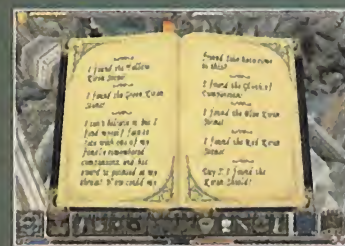 I found the Yellow
Kwan Stone!
I found the Green Kwan
Stone!
I can't believe it, but I
find myself face to
face with one of my
fondly remembered
companions, and his
sword is pointed at my
throat. How could my
friend Iolo have come
to this?
I found the Glyph of
Compassion!
I found the Blue Kwan
Stone!
I found the Red Kwan
Stone!
Day 2: I found the
Kwan Shield!